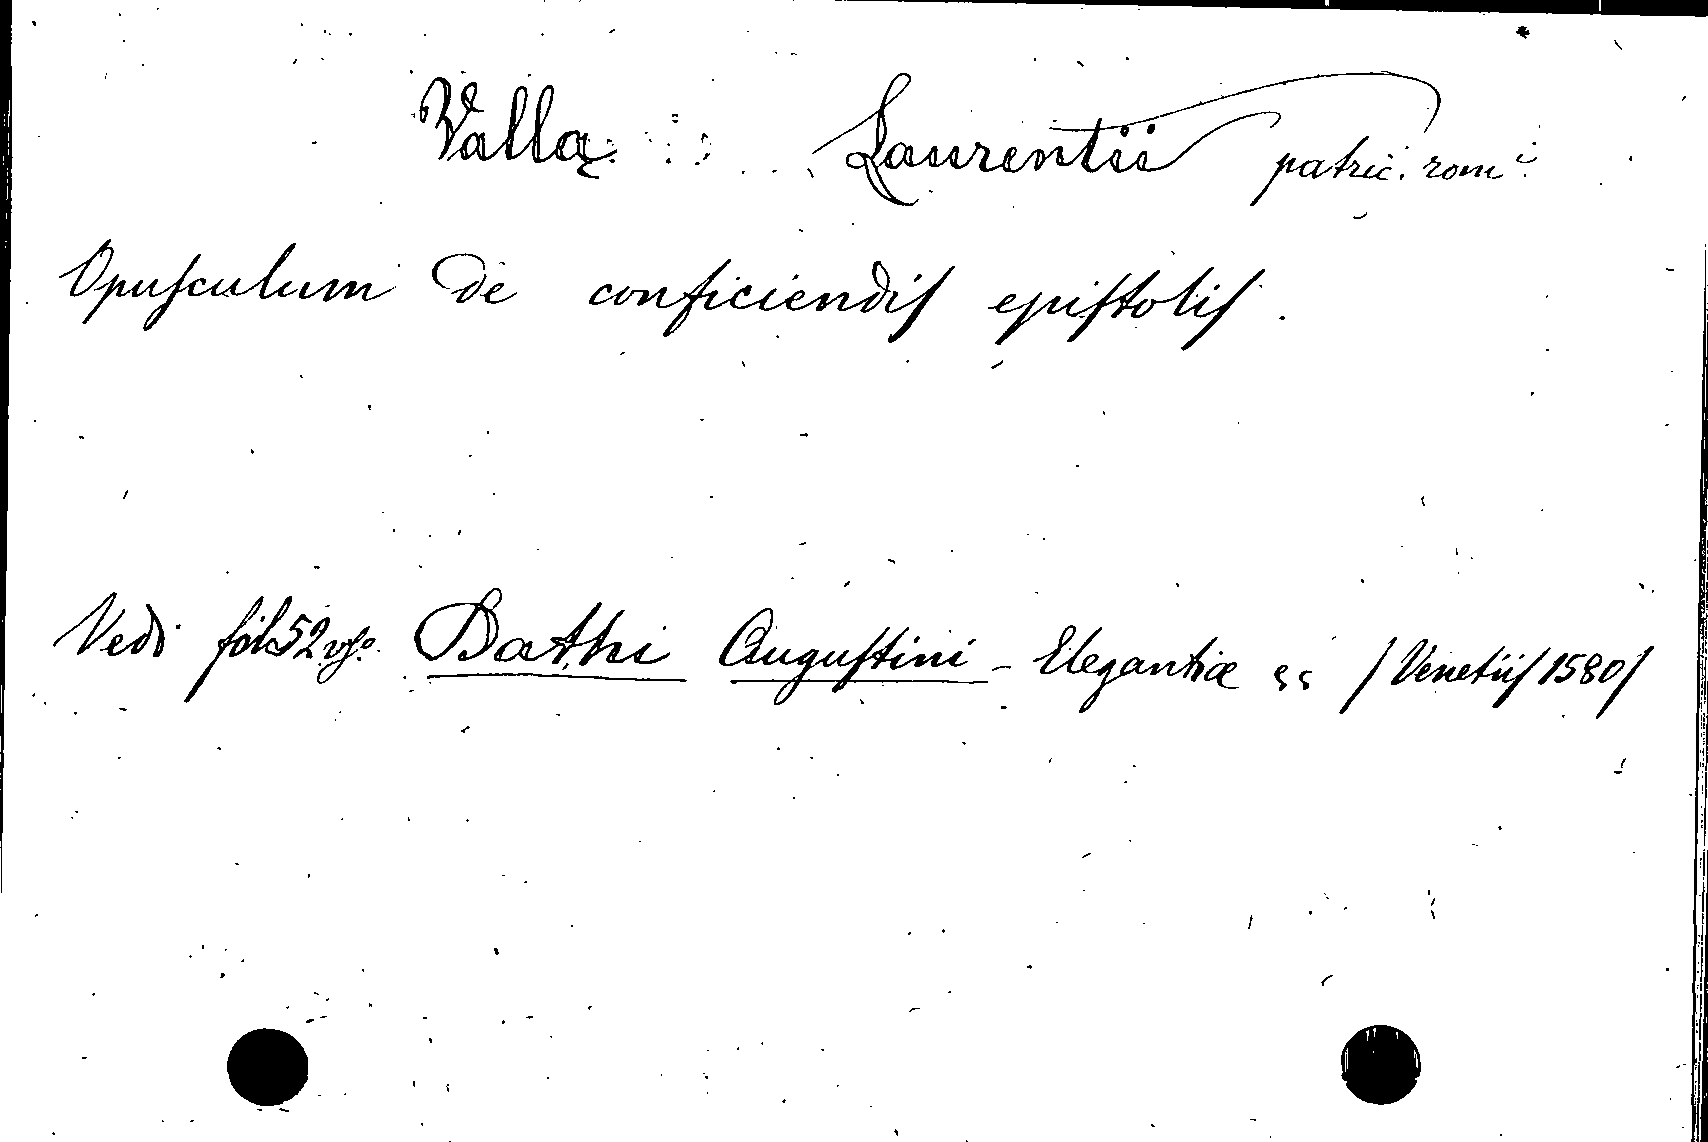 Vallæ Laurentii patric. rom.i
Opuſculum de conficiendiſ epiſtoliſ.
Vedi fol 52 vſo. Dathi Auguſtini - Elegantiæ /Venetiiſ 1580/